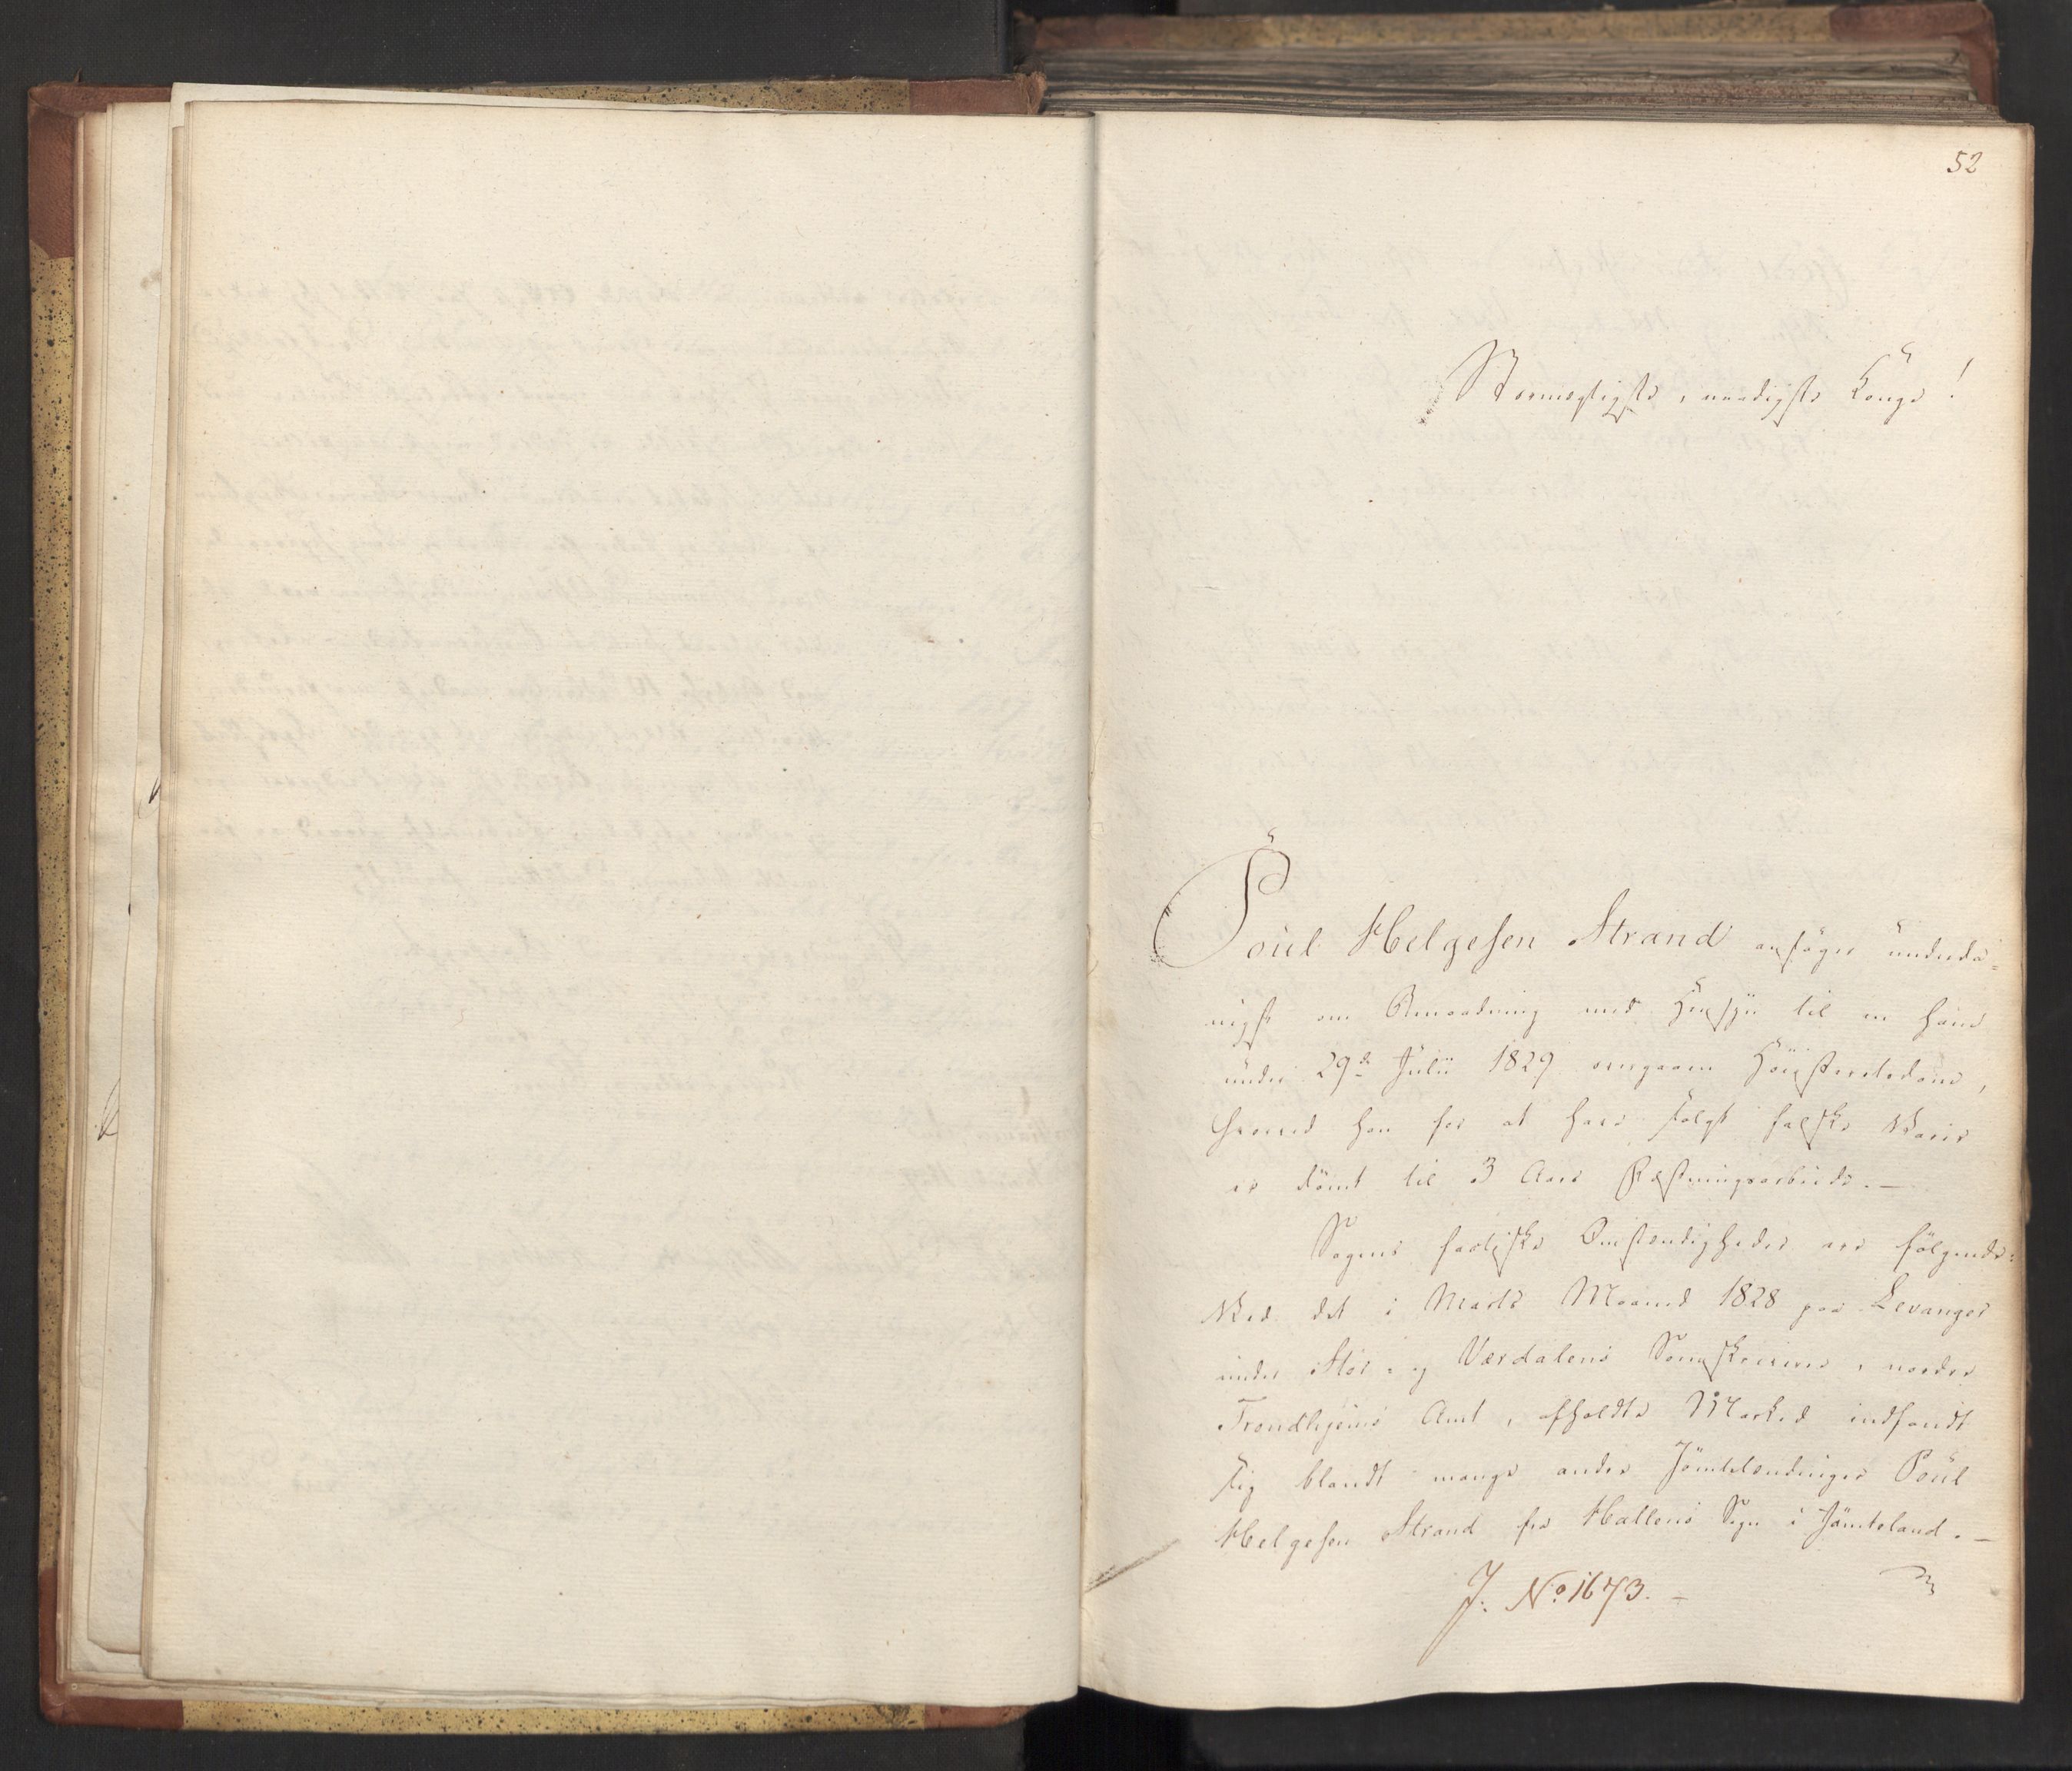 52
Stormægtigste, naadigste Konge!
Poul Helgesen Strand ansøger underda=
nigst om Benaadning med Hensyn til en ham
under 29de Julii 1829 overgaaen Høiesteretsdom,
hvorved han for at have solgt falske Varer
er dømt til 3 Aars Fæstningsarbeide. —
Sagens factiske Omstændigheder ere følgende:
Ved det i Marts Maaned 1828 paa Levanger
under Stør- og Værdalens Sorenskriverie, nordre
Trondhjems Amt, afholdte Marked indfandt
sig blandt mange andre Jämtelændinger Poul
Helgesen Strand fra Hallens Sogn i Jämteland. —
J: No 1673. —